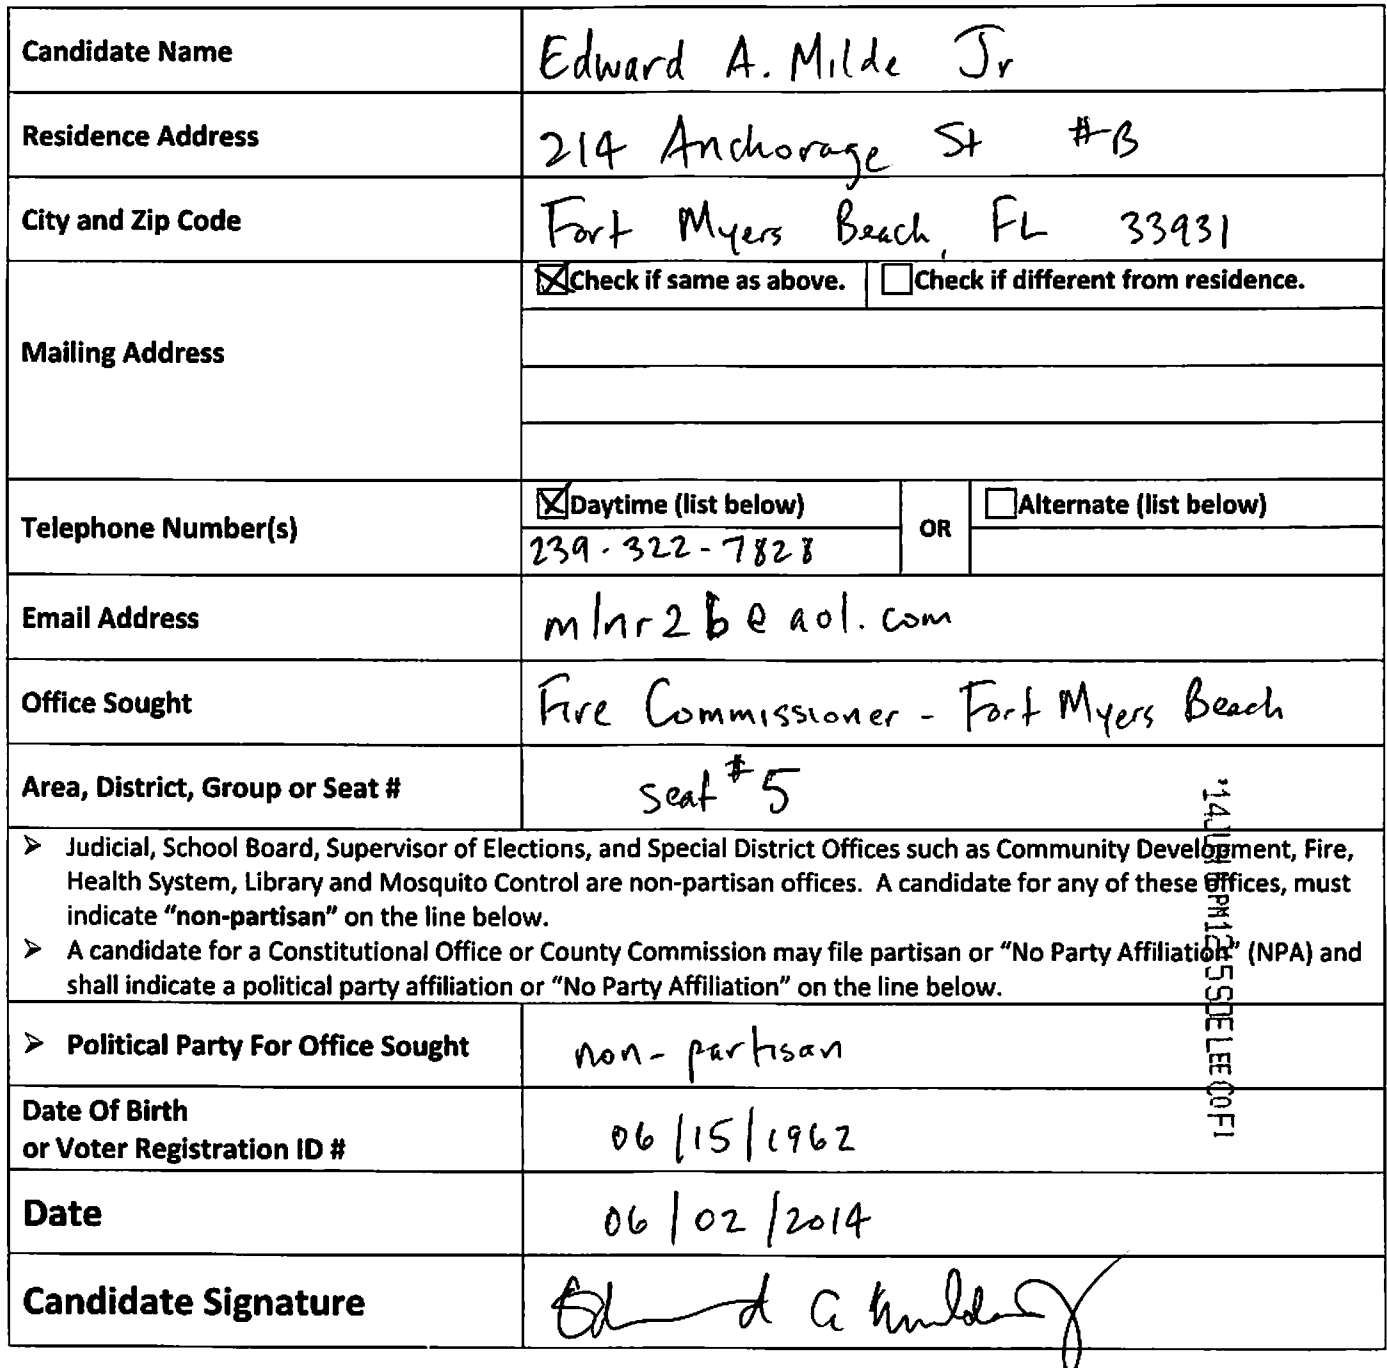 Candidate Name Edward A. Milde Jr
Residence Address 214 Anchorage St #B
City and Zip Code Fort Myers Beach, FL 33931
☒Check if same as above. ☐Check if different from residence.
Mailing Address
☒Daytime (list below) OR ☐Alternate (list below)
Telephone Number(s) 239-322-7828
Email Address mlnr2b@aol.com
Office Sought Fire Commissioner - Fort Myers Beach
Area, District, Group or Seat # seat #5
➢ Judicial, School Board, Supervisor of Elections, and Special District Offices such as Community Development, Fire,
Health System, Library and Mosquito Control are non-partisan offices. A candidate for any of these offices, must
indicate “non-partisan” on the line below.
➢ A candidate for a Constitutional Office or County Commission may file partisan or “No Party Affiliation” (NPA) and
shall indicate a political party affiliation or “No Party Affiliation” on the line below.
➢ Political Party For Office Sought non-partisan
Date Of Birth
or Voter Registration ID # 06/15/1962
Date 06/02/2014
Candidate Signature Edward A Milde Jr
LEE CO Fl